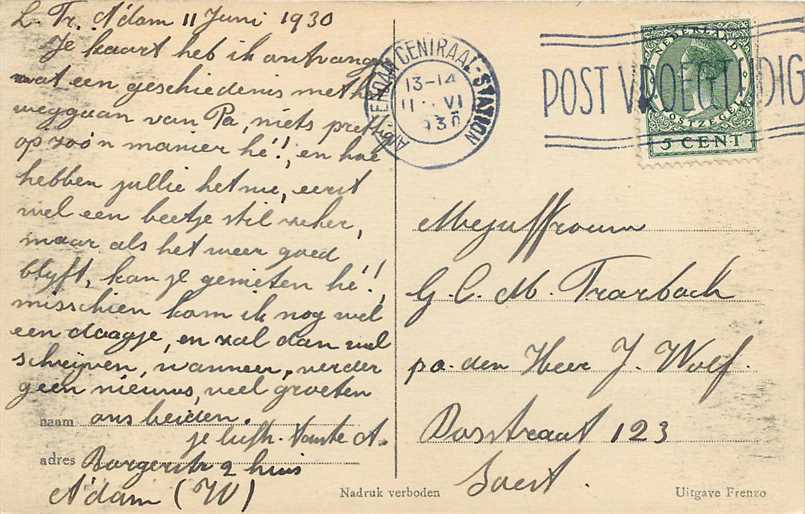 L. Tr. A'dam 11 Juni 1930
Je kaart heb ik ontvangen
wat een geschiedenis met h
weggaan van Pa, niets prettig
op zoo'n manier hè!!, en hoe
hebben jullie het nu, eerst
wel een beetje stil zeker,
maar als het weer goed
blyft, kan je genieten hè!!
misschien kom ik nog wel
een daagje, en zal dan wel
schrijven, wanneer, verder
geen nieuws, veel groeten
naam ons beiden.
je liefh. Tante A.
adres Borgerstr 2 huis
A'dam (W)
AMSTERDAM CENTRAAL-STATION
13-14
11 VI
1930
POST VROEGTIJDIG
NEDERLAND
POSTZEGEL
5 CENT
Mejuffrouw
G. C. M. Trarbach
p.a. den Heer J. Wolf.
Bosstraat 123
Soest.
Nadruk verboden
Uitgave Frenzo